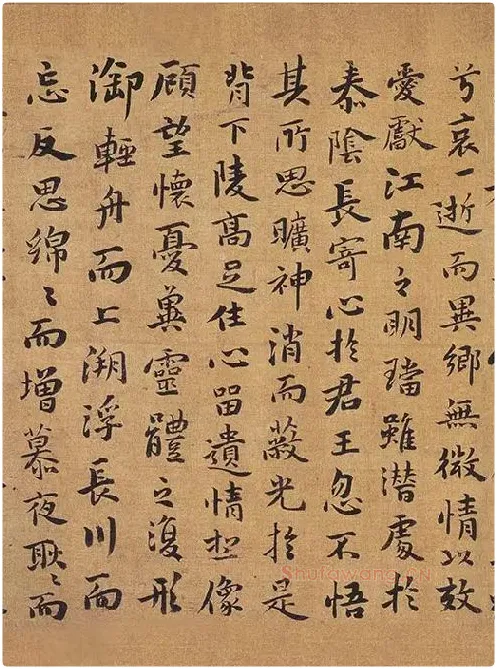 兮哀一逝而異鄉無微情以效
愛獻江南之明璫雖潛處於
泰陰長寄心於君王忽不悟
其所思曠神消而蔽光於是
背下陵高足住心留遺情想像
顧望懷憂冀靈體之復形
御輕舟而上溯浮長川而
忘反思綿〻而增慕夜耿〻而